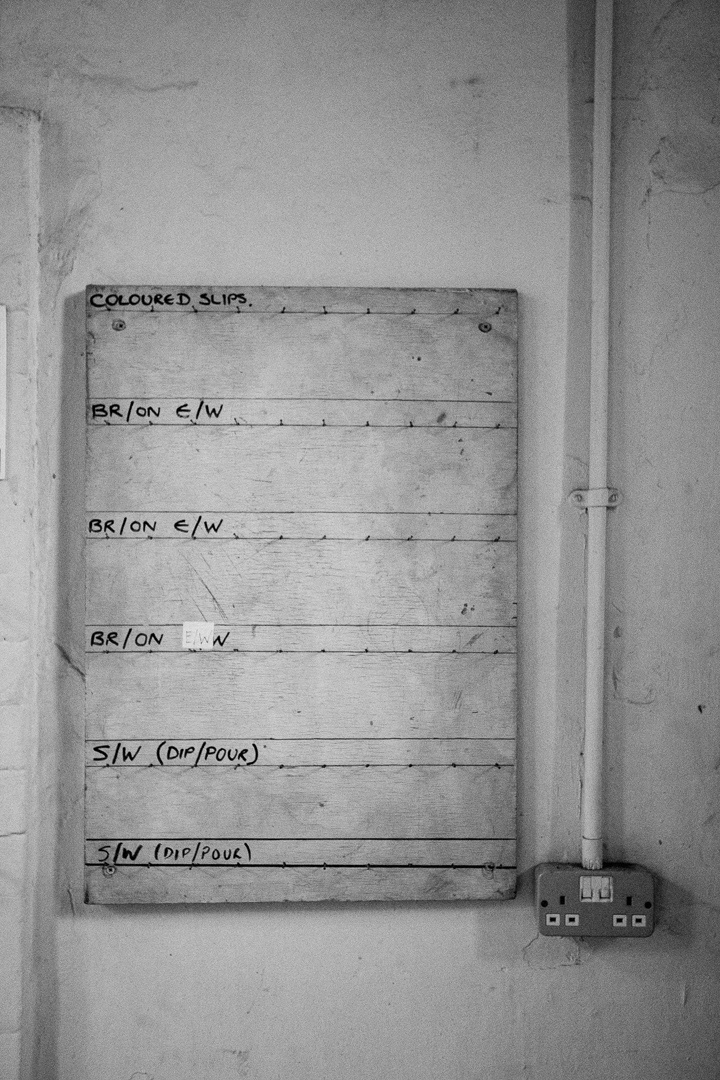 COLOURED SLIPS.
BR/ON E/W
BR/ON E/W
BR/ON E/WW
S/W (DIP/POUR)
S/W (DIP/POUR)